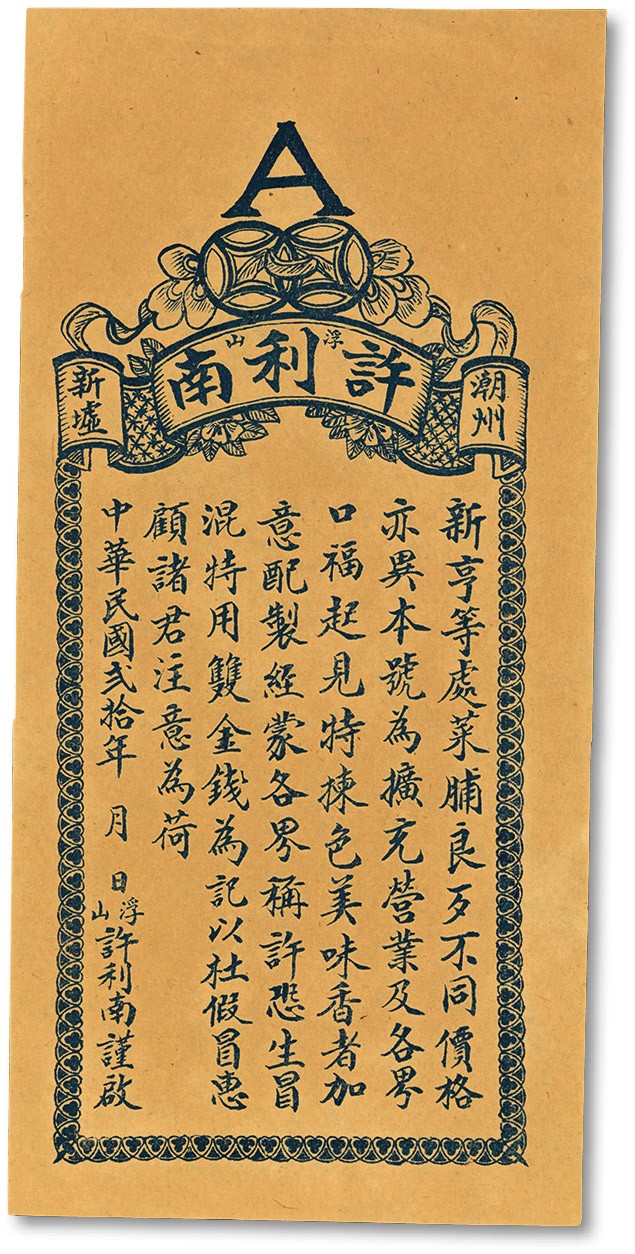 A
許利南
浮山
潮州
新墟
新亨等處菜脯良歹不同價格
亦異本號為擴充營業及各界
口福起見特揀色美味香者加
意配製經蒙各界稱許恐生冒
混特用雙金錢為記以杜假冒惠
顧諸君注意為荷
中華民國弍拾年　月　日浮山許利南謹啟